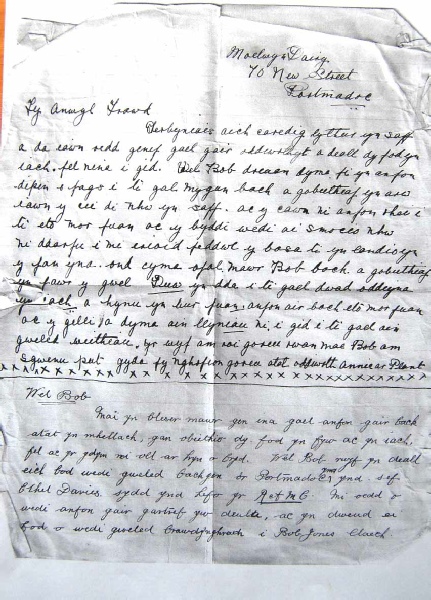 Moelwyn Dairy
70 New Street
Portmadoc
Fy Anwyl Frawd
Derbyniais eich caredig lythyr yn saff
a da iawn oedd genif gael gair oddiwrthyt a deall dy fod yn
iach. fel nina i gid. Wel Bob dyma fi yn anfon
o fags i ti gal mygun bach a gobeithiaf yn arw
iawn y cei di nhw yn saff. ac y cawn ni anfon rhai i
ti eto mor fuan ac y byddi wedi nhw
ni i mi y basa ti yn
y fan yna. ond cyma ofal mawr Bob bach a gobeithiaf
yn fawr y gwel Duw yn dda i ti gael dwad oddiyna
yn iach a hynu yn bur fuan, anfon air bach eto mor fuan
ac y gelli, a dyma ein llyniau ni i gid i ti gael ein
gweled yr wyf am roi gorau rwan mae Bob am
sgwenu pwt gyda fy nghofion gorau atat oddiwrth Annie ar Plant
x x x x x x x x x x x x x x x x x x x x x x x x x x x x
Wel Bob
Mai yn bleser mawr gen ina gael anfon gair bach
atat yn mhellach, gan obeithio dy fod yn fyw ac yn iach,
fel ac yr ydym ni oll ar hyn o bryd. Wel Bob rwyf yn deall
eich bod wedi gweled bachgen or Portmadoc yna ynd, sef
Ethel Davies, sydd ynd hefo yr R.A.M.C. Mi oedd o
wedi anfon gair gartref yw deulu, ac yn dweud ei
fod o wedi gweled Brawdynghrach i Bob Jones Llaeth.